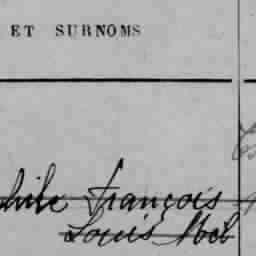 ET SURNOMS
phile François
Louis Noël